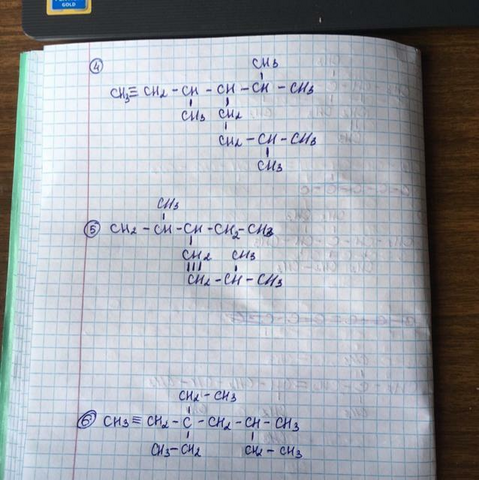 GOLD
④ CH₃
CH₃≡ CH₂ – CH – CH – CH – CH₃
CH₃ CH₂
CH₂ – CH – CH₃
CH₃
⑤ CH₃
CH₂ – CH – CH – CH₂ – CH₃
CH₂ CH₃
CH₂ – CH – CH₃
CH₂ – CH₃
⑥ CH₃ ≡ CH₂ – C – CH₂ – CH – CH₃
CH₃ – CH₂ CH₂ – CH₃